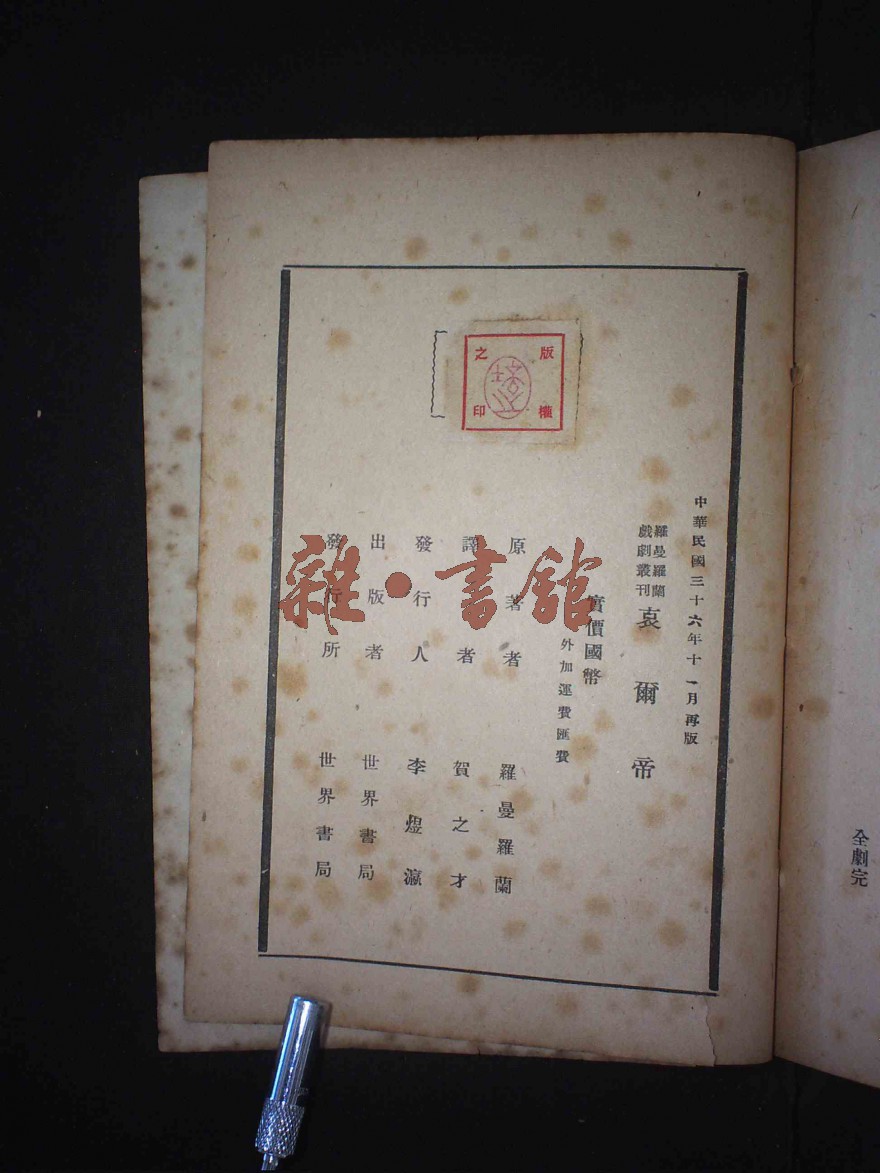 版權
之印
中華民國三十六年十一月再版
羅曼羅蘭
戲劇叢刊
哀爾帝
實價國幣
外加運費匯費
原著者 羅曼羅蘭
譯者 賀之才
發行人 李煜瀛
出版者 世界書局
發行所 世界書局
全劇完
雜·書館